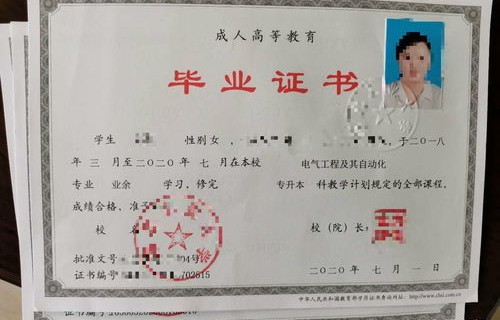 成人高等教育
毕业证书
学生 性别女， ，于二〇一八
年 三 月至二〇二〇年 七 月在本校 电气工程及其自动化
专业 业余 学习，修完 专升本 科教学计划规定的全部课程，
成绩合格，准予
校 校（院）长：
批准文号： 04号
证书编号： 702515 二〇二〇年 七 月 一 日
中华人民共和国教育部学历证书查询网址：http://www.chsi.com.cn
证书编号